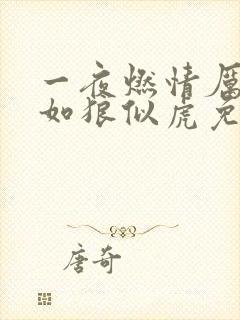 一夜燃情厲
如狼似虎免
唐奇